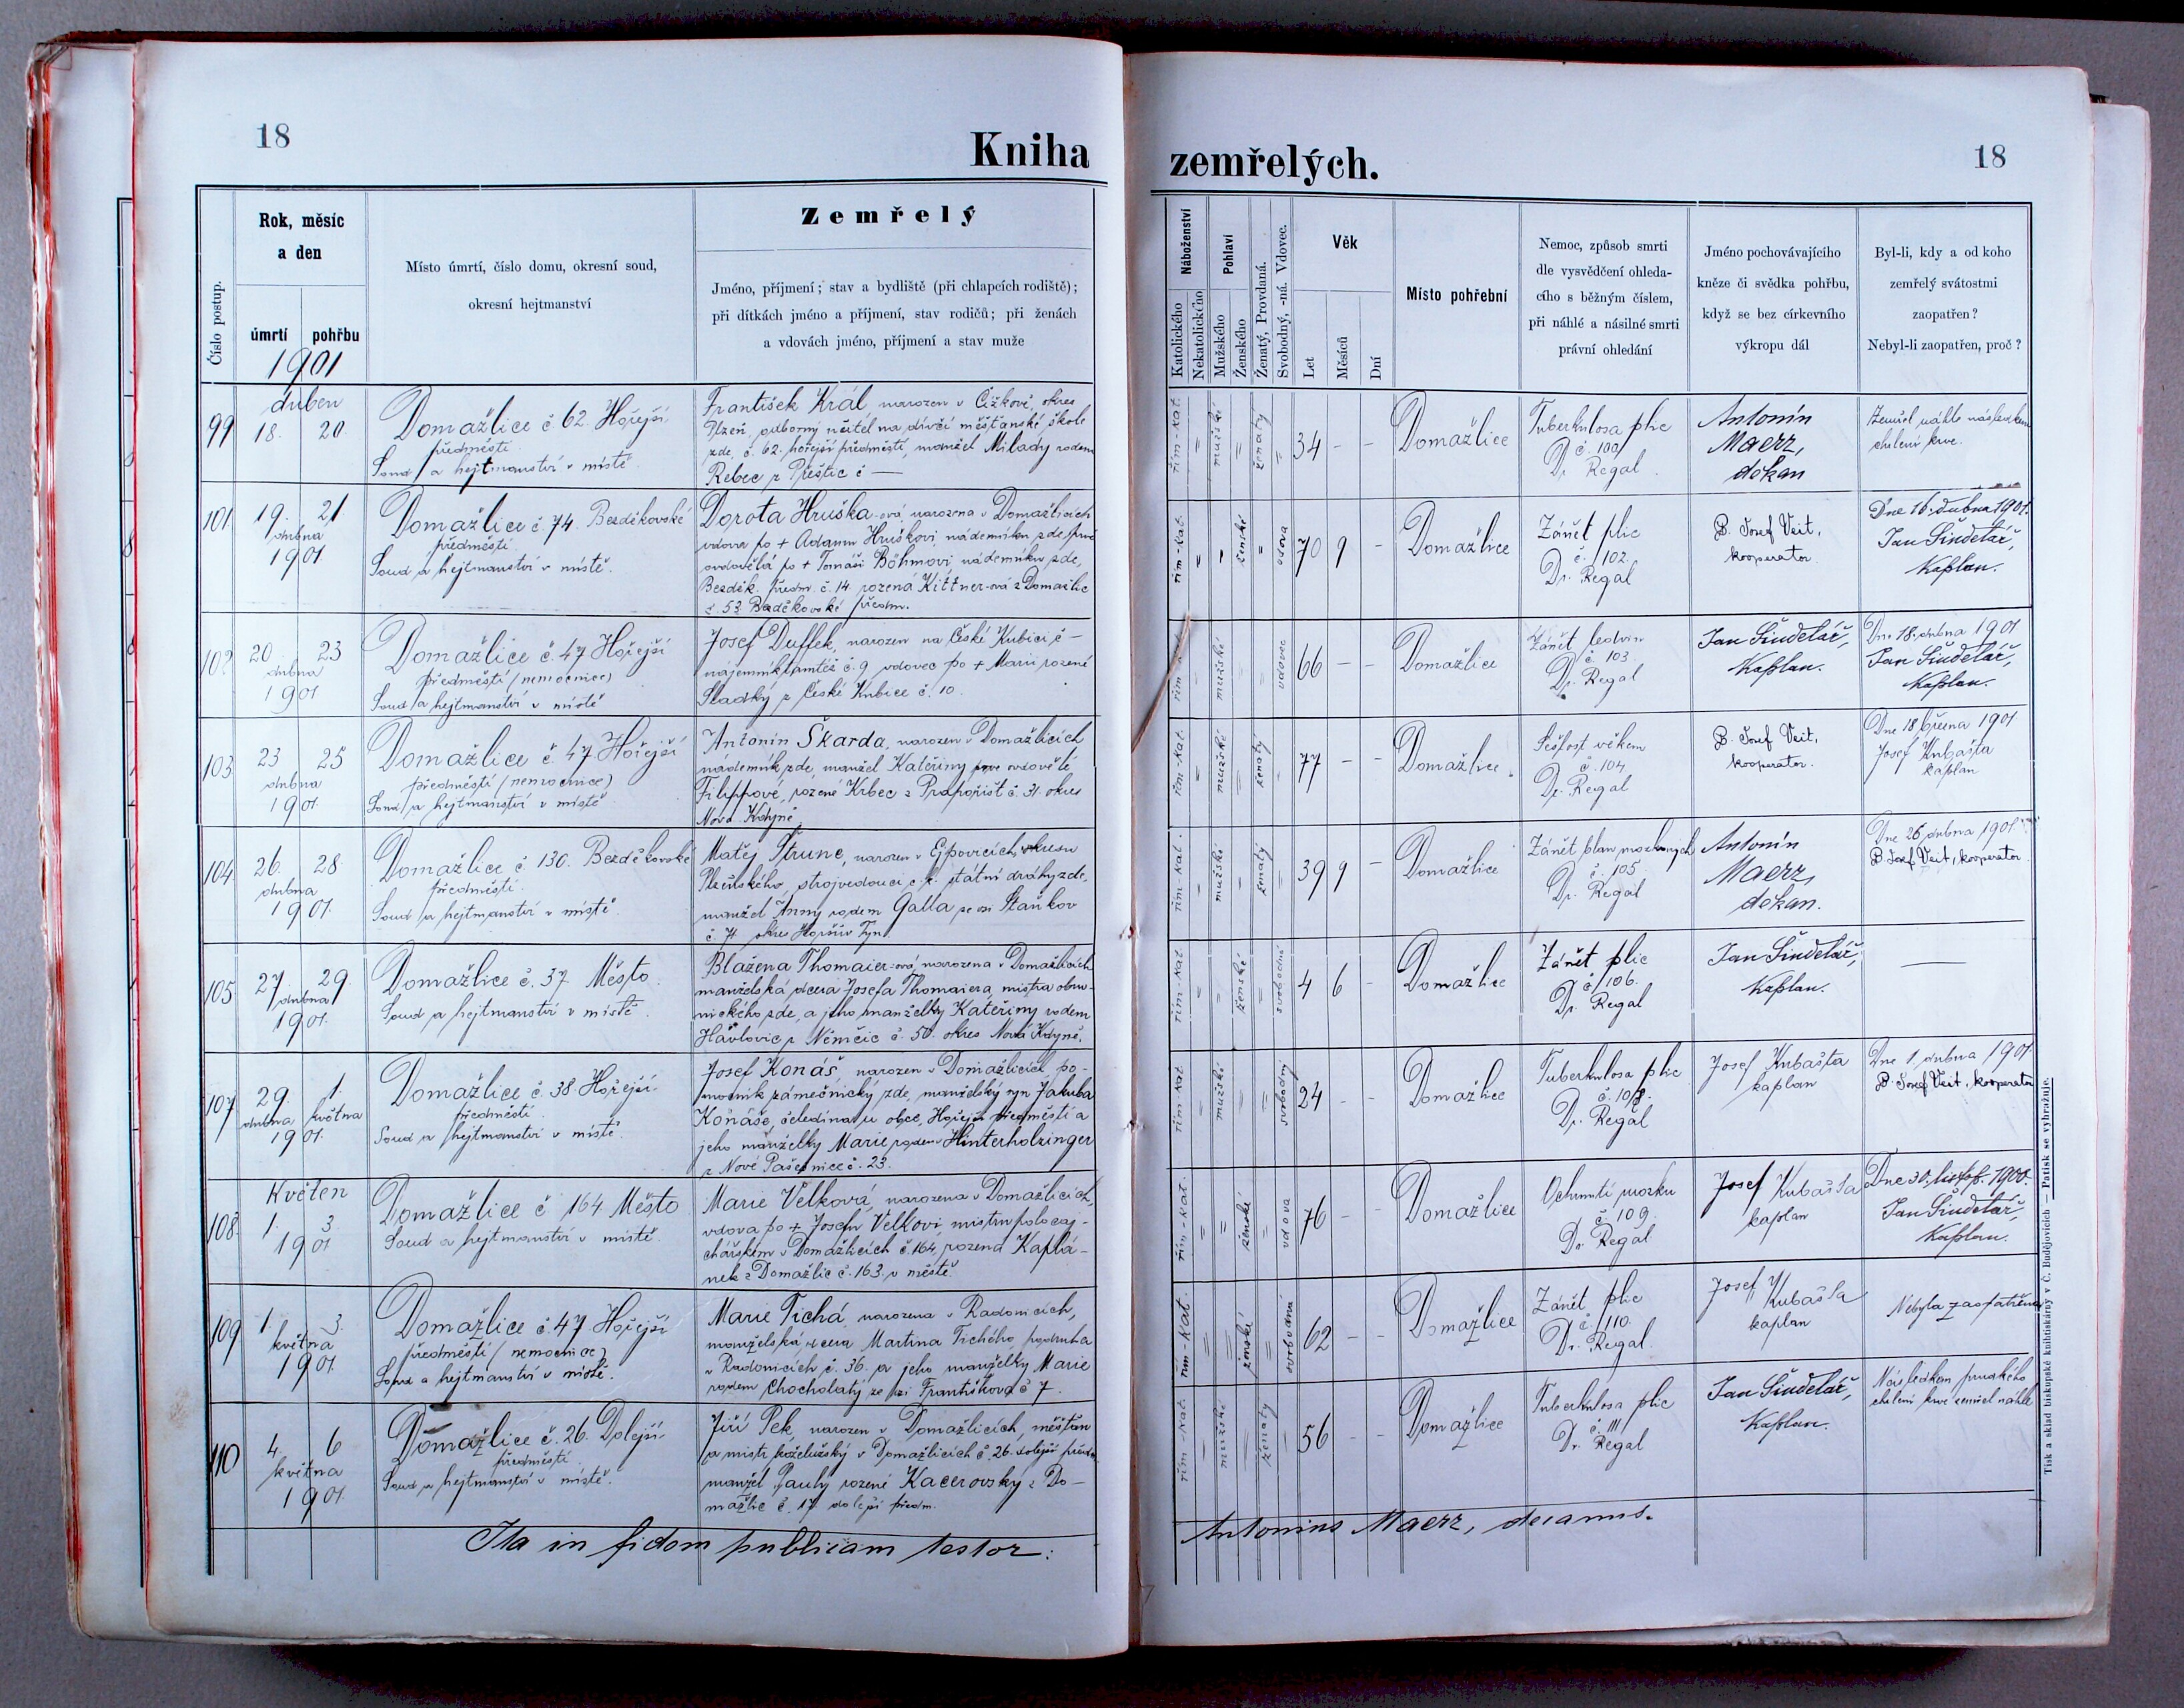 18
Kniha
Číslo postup.
Rok, měsíc
a den
úmrtí
pohřbu
1901
Místo úmrtí, číslo domu, okresní soud,
okresní hejtmanství
Zemřelý
Jméno, příjmení; stav a bydliště (při chlapcích rodiště);
při dítkách jméno a příjmení, stav rodičů; při ženách
a vdovách jméno, příjmení a stav muže
99
duben
18. 20.
Domažlice č 62. Hořejší
předměstí.
Soud a hejtmanství v místě.
František Král narozen v Čížkově, okres
Plzeň, odborný učitel na dívčí měšťanské škole
zde, č. 62. hořejší předměstí, manžel Milady rodem
Rebec z Přeštic č —
101
19. 21
dubna
1901
Domažlice č. 74. Bezděkovské
předměstí.
Soud a hejtmanství v místě.
Dorota Hruška-ová, narozena v Domažlicích
vdova po + Adamu Hruškovi, nádeníku zde, prvé
ovdovělá po + Tomáši Böhmovi, nádeníku zde,
Bezděk. předm. č. 14 rozená Kittner-ová z Domažlic
č. 53 Bezděkovské předm.
102
20. 23
dubna
1901
Domažlice č. 47 Hořejší
předměstí (nemocnice)
Soud a hejtmanství v místě
Josef Duffek, narozen na České Kubici č —
nájemník tamtéž č. 9 vdovec po + Marii rozené
Sladký z České Kubice č. 10.
103
23 25
dubna
1901
Domažlice č. 47 Hořejší
předměstí (nemocnice)
Soud a hejtmanství v místě
Antonín Škarda, narozen v Domažlicích
nádeník zde, manžel Kateřiny prve ovdovělé
Filippové, rozené Krbec z Prapořišt č. 31. okres
Nová Kdyně.
104
26. 28
dubna
1901.
Domažlice č. 130. Bezděkovské
předměstí.
Soud a hejtmanství v místě.
Matěj Štrunc, narozen v Ejpovicích, okresu
Plzeňského, strojvedoucí c. k. státní dráhy zde,
manžel Anny rodem Galla ze vsi Staňkov
č. 71 okres Horšův Týn.
105
27 29
dubna
1901.
Domažlice č. 37 Město.
Soud a hejtmanství v místě.
Blažena Thomaier-ová, narozena v Domažlicích
manželská dcera Josefa Thomaiera, mistra obuv-
nického zde, a jeho manželky Kateřiny rodem
Havlovic z Němčic č. 50. okres Nová Kdyně.
107
29. 1.
dubna května
1901.
Domažlice č. 38 Hořejší
předměstí.
Soud a hejtmanství v místě.
Josef Konáš, narozen v Domažlicích, po-
mocník zámečnický zde, manželský syn Jakuba
Konáše, čeledína u obce, Hořejší předměstí a
jeho manželky Marie rodem Hinterholzinger
z Nové Pasečnice č. 23.
108.
Květen
1. 3.
1901
Domažlice č 164 Město
Soud a hejtmanství v místě.
Marie Velková, narozena v Domažlicích,
vdova po + Josefu Velkovi, mistru
v Domažlicích č. 164, rozená Kaplá-
nek z Domažlic č. 163 v městě.
109
1. 3.
května
1901.
Domažlice č. 47 Hořejší
předměstí (nemocnice)
Soud a hejtmanství v místě.
Marie Tichá, narozena v Radonicích,
manželská dcera Martina Tichého, podruha
v Radonicích č. 36. a jeho manželky Marie
rodem Chocholatý ze vsi Františkova č 7.
110
4. 6
května
1901.
Domažlice č. 26. Dolejší
předměstí
Soud a hejtmanství v místě.
Jiří Pek, narozen v Domažlicích, měšťan
a mistr koželužský v Domažlicích č. 26. dolejší předm.
manžel Pauly rozené Kacerovský z Do-
mažlic č. 17 dolejší předm.
Ita in fidem publicam testor:
zemřelých.
18
Náboženství
Katolického
Nekatolického
Pohlaví
Mužského
Ženského
Ženatý, Provdaná.
Svobodný, -ná. Vdovec.
Věk
Let
Měsíců
Dní
Místo pohřební
Nemoc, způsob smrti
dle vysvědčení ohleda-
cího s běžným číslem,
při náhlé a násilné smrti
právní ohledání
Jméno pochovávajícího
kněze či svědka pohřbu,
když se bez církevního
výkropu dál
Byl-li, kdy a od koho
zemřelý svátostmi
zaopatřen?
Nebyl-li zaopatřen, proč?
řím-kat. mužské ženatý 34 — — Domažlice
Tuberkulosa plic
č. 100
Dr. Regal
Antonín
Maerz,
děkan
Zemřel náhle následkem
chrlení krve.
řím-kat. ženské vdova 70 9 — Domažlice
Zánět plic
č. 102.
Dr. Regal
P. Josef Veit,
kooperator.
Dne 16. dubna 1901.
Jan Šindelář,
Kaplan.
řím-kat mužské vdovec 66 — — Domažlice
Zánět ledvin
č. 103
Dr. Regal
Jan Šindelář,
Kaplan.
Dne 18. dubna 1901
Jan Šindelář,
Kaplan.
řím-kat. mužské ženatý 77 — — Domažlice
Sešlost věkem
č. 104
Dr. Regal
P. Josef Veit,
kooperator.
Dne 18 března 1901
Josef Kubašta
kaplan
řím-kat. mužské ženatý 39 9 — Domažlice
Zánět blan mozkových
č. 105
Dr. Regal
Antonín
Maerz,
děkan.
Dne 26 dubna 1901
P. Josef Veit, kooperator.
řím-kat. ženské svobodná 4 6 — Domažlice
Zánět plic
č. 106.
Dr. Regal
Jan Šindelář,
Kaplan.
—
řím-kat. mužské svobodný 24 — — Domažlice
Tuberkulosa plic
č. 108.
Dr. Regal
Josef Kubašta
kaplan
Dne 1. dubna 1901.
P. Josef Veit, kooperator
řím-kat. ženské vdova 76 — — Domažlice
Ochrnutí mozku
č. 109.
Dr. Regal
Josef Kubašta
kaplan
Dne 30. listop. 1900.
Jan Šindelář,
Kaplan.
řím-kat. ženské svobodná 62 — — Domažlice
Zánět plic
č. 110.
Dr. Regal
Josef Kubašta
kaplan
Nebyla zaopatřena
řím-kat. mužské ženatý 56 — — Domažlice
Tuberkulosa plic
č. 111
Dr. Regal
Jan Šindelář,
Kaplan.
Následkem prudkého
chrlení krve zemřel náhle
Antonius Maerz, decanus.
Tisk a sklad biskupské knihtiskárny v Č. Budějovicích — Patisk se vyhražuje.